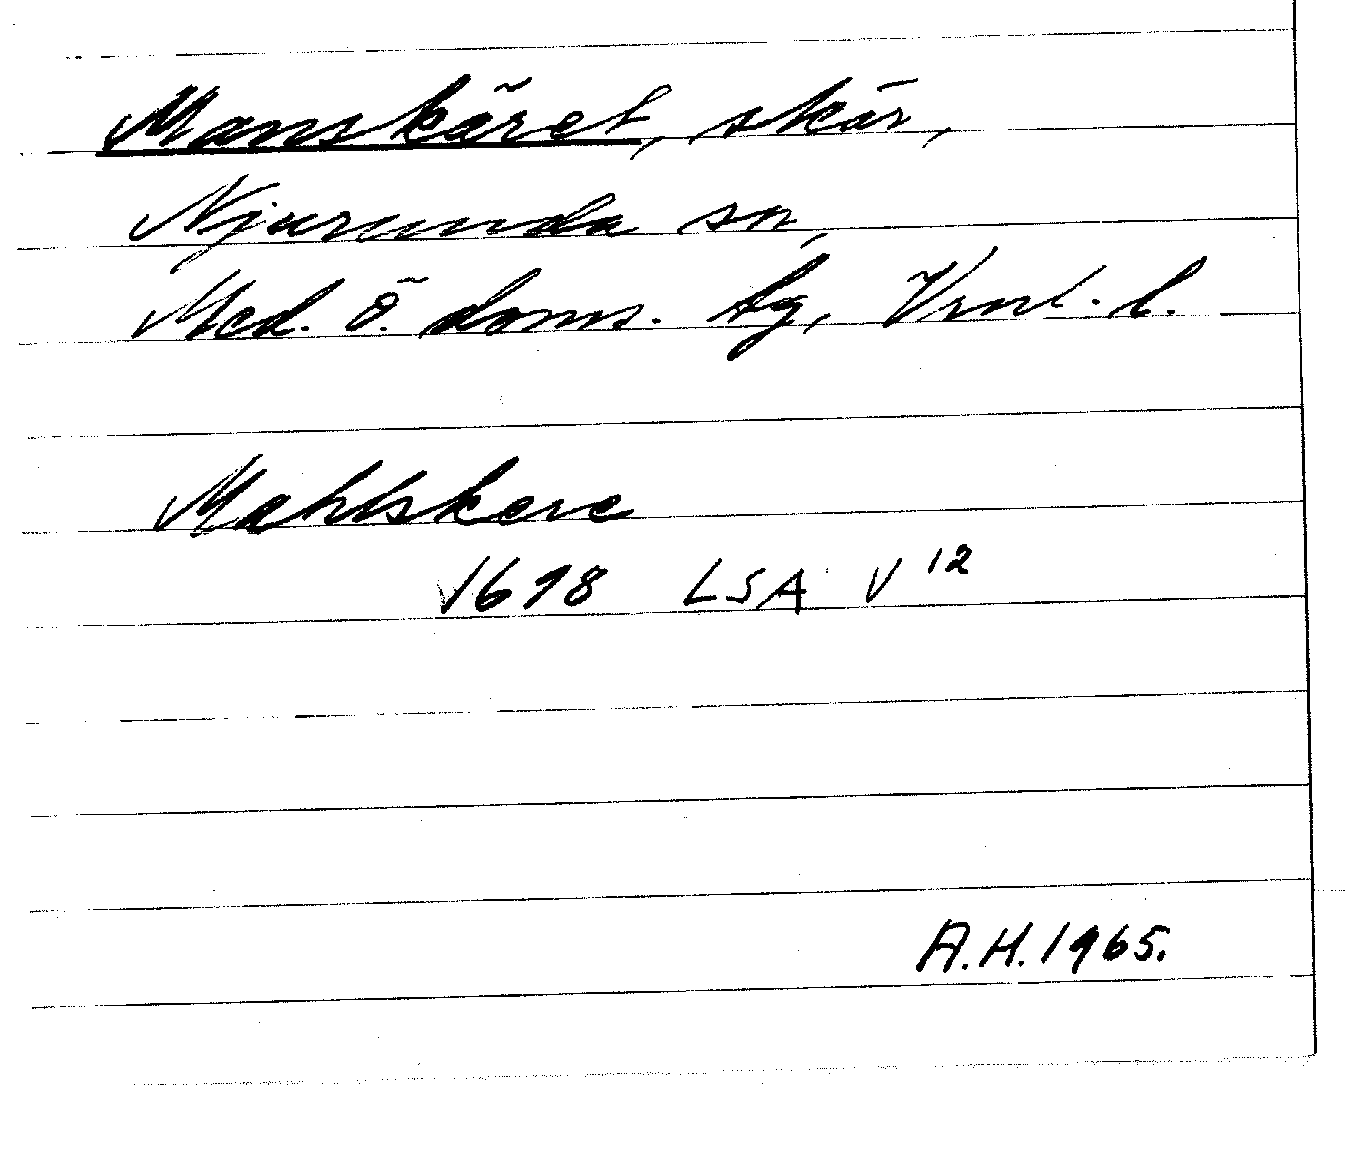 Manskäret, skär,
Njurunda sn,
Med. ö. doms. tg, Vrnl. l.
Mahlskere
1678 LSA V 12
A.H. 1965.